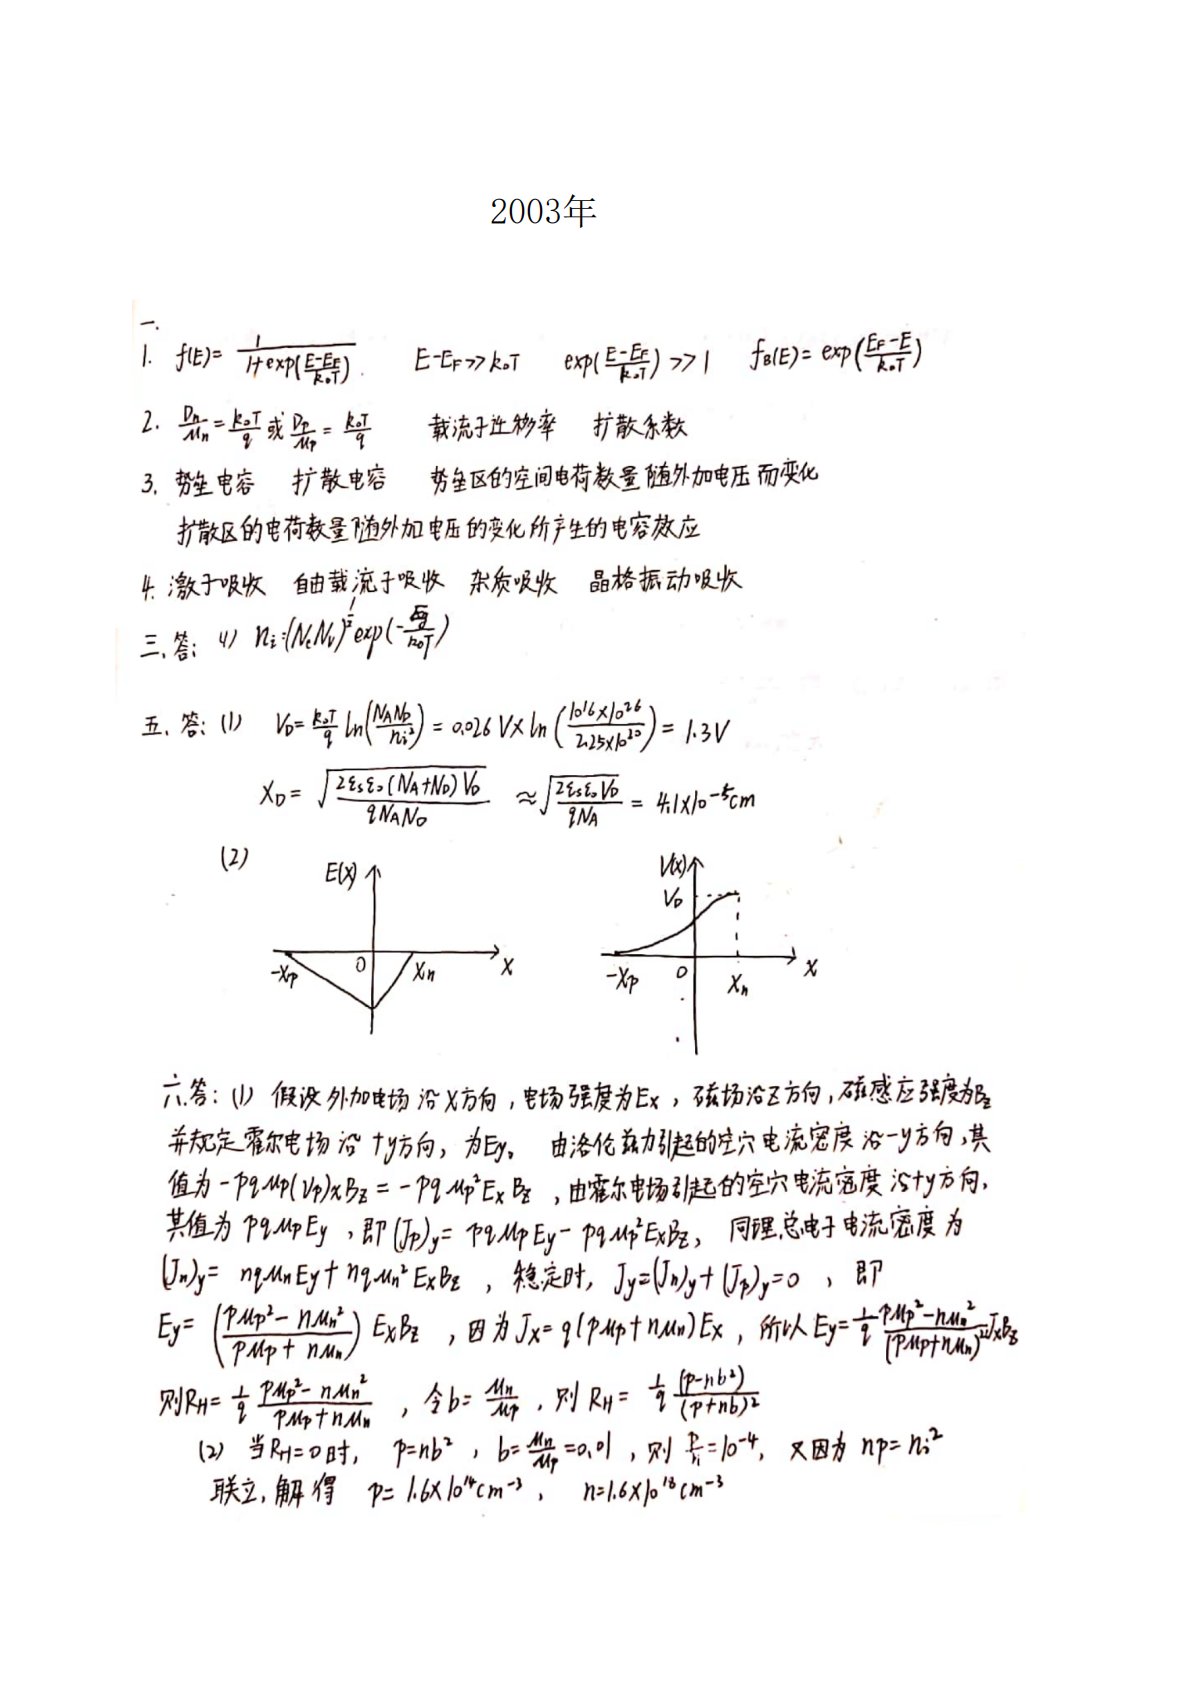 2003年
一.
1. f(E)= 1/(1+exp((E-E_F)/k₀T)) E-E_F>>k₀T exp((E-E_F)/k₀T)>>1 f_B(E)=exp((E_F-E)/k₀T)
2. D_n/μ_n=k₀T/q 或 D_p/μ_p=k₀T/q 载流子迁移率 扩散系数
3. 势垒电容 扩散电容 势垒区的空间电荷数量随外加电压而变化
扩散区的电荷数量随外加电压的变化所产生的电容效应
4. 激子吸收 自由载流子吸收 杂质吸收 晶格振动吸收
三、答: (1) n_i=(N_cN_v)^(1/2)exp(-E_g/k₀T)
五、答: (1) V_D=k₀T/q ln(N_AN_D/n_i²)=0.026V×ln(10^16×10^26/2.25×10^20)=1.3V
X_D=√(2ε_sε₀(N_A+N_D)V_D/qN_AN_D) ≈√(2ε_sε₀V_D/qN_A)=4.1×10^-5cm
(2) E(x) V(x)
V_D
-X_p 0 X_n X -X_p 0 X_n X
六.答: (1) 假设外加电场沿X方向,电场强度为Ex,磁场沿Z方向,磁感应强度为Bz
并规定霍尔电场沿+y方向,为Ey。 由洛伦兹力引起的空穴电流密度沿-y方向,其
值为-pqμp(Vp)xBz=-pqμp²ExBz,由霍尔电场引起的空穴电流密度沿+y方向,
其值为pqμpEy,即(Jp)y=pqμpEy-pqμp²ExBz, 同理总电子电流密度为
(Jn)y=nqμnEy+nqμn²ExBz,稳定时,Jy=(Jn)y+(Jp)y=0,即
Ey=((pμp²-nμn²)/(pμp+nμn))ExBz,因为Jx=q(pμp+nμn)Ex,所以Ey=1/q (pμp²-nμn²)/(pμp+nμn)²JxBz
则R_H=1/q (pμp²-nμn²)/(pμp+nμn),令b=μn/μp,则R_H=1/q (p-nb²)/(p+nb)²
(2) 当R_H=0时, p=nb²,b=μn/μp=0.01,则p/n=10^-4, 又因为np=n_i²
联立,解得 p=1.6×10^14cm^-3, n=1.6×10^18cm^-3